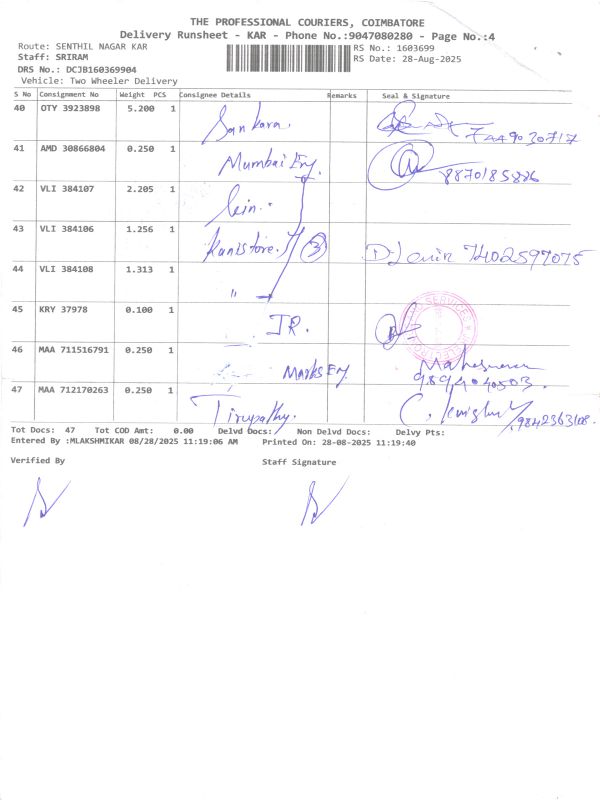 THE PROFESSIONAL COURIERS, COIMBATORE
Delivery Runsheet - KAR - Phone No.:9047080280 - Page No.:4
Route: SENTHIL NAGAR KAR RS No.: 1603699
Staff: SRIRAM RS Date: 28-Aug-2025
DRS No.: DCJB160369904
Vehicle: Two Wheeler Delivery
S No Consignment No Weight PCS Consignee Details Remarks Seal & Signature
40 OTY 3923898 5.200 1 Sankara. 7449030717
41 AMD 30866804 0.250 1 Mumbai Ery. 8870185886
42 VLI 384107 2.205 1
43 VLI 384106 1.256 1 3 7402597075
44 VLI 384108 1.313 1 "
45 KRY 37978 0.100 1 JR. SERVICES
46 MAA 711516791 0.250 1 Marks Ery. Maheswaran
9894040503.
47 MAA 712170263 0.250 1 Tirupathy. 9842363108.
Tot Docs: 47 Tot COD Amt: 0.00 Delvd Docs: Non Delvd Docs: Delvy Pts:
Entered By :MLAKSHMIKAR 08/28/2025 11:19:06 AM Printed On: 28-08-2025 11:19:40
Verified By Staff Signature